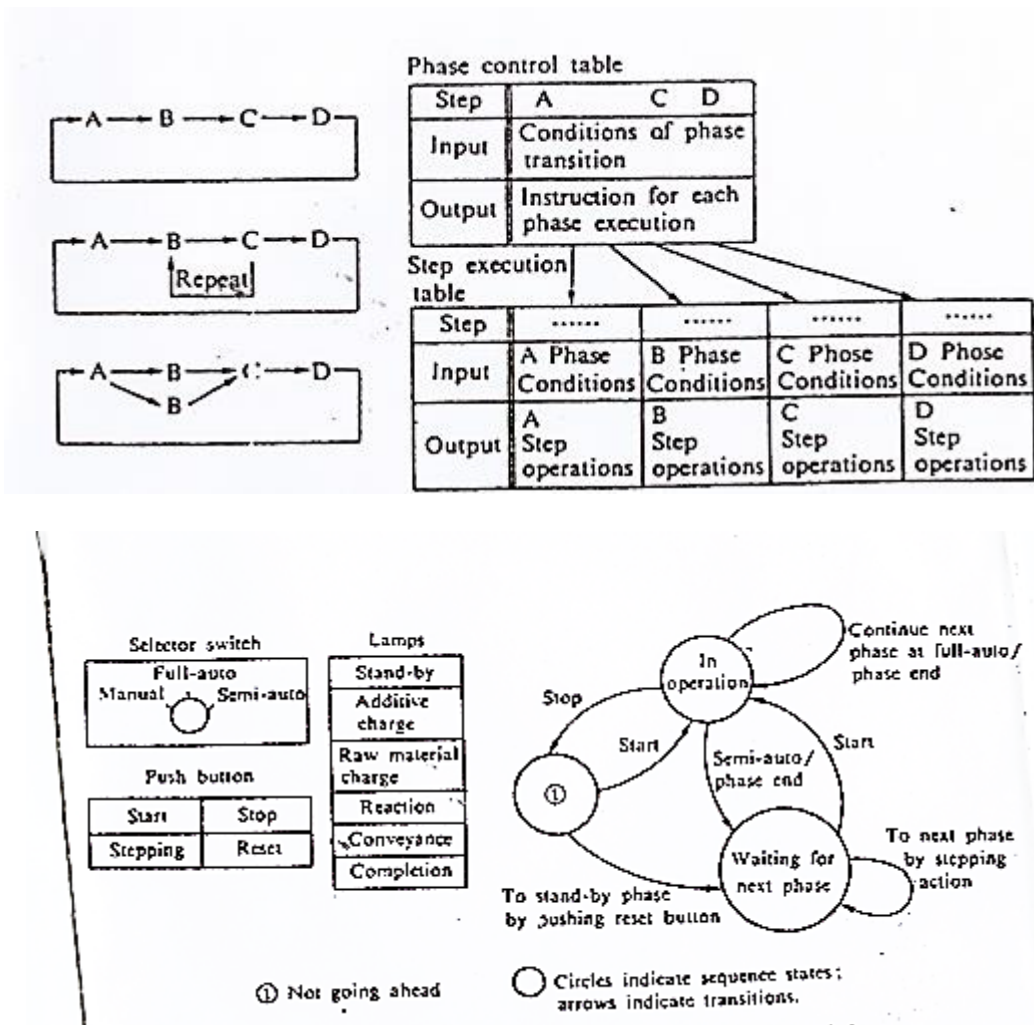 A B C D
A B C D
Repeat
A B C D
B
Phase control table
Step A C D
Input Conditions of phase
transition
Output Instruction for each
phase execution
Step execution
table
Step ...... ...... ...... ......
Input A Phase
Conditions B Phase
Conditions C Phose
Conditions D Phose
Conditions
Output A
Step
operations B
Step
operations C
Step
operations D
Step
operations
Selector switch
Full-auto
Manual Semi-auto
Push button
Start Stop
Stepping Reset
Lamps
Stand-by
Additive
charge
Raw material
charge
Reaction
Conveyance
Completion
In
operation
Continue next
phase at full-auto/
phase end
Stop
Start
Semi-auto/
phase end
Start
①
Waiting for
next phase
To next phase
by stepping
action
To stand-by phase
by pushing reset button
① Not going ahead
Circles indicate sequence states;
arrows indicate transitions.